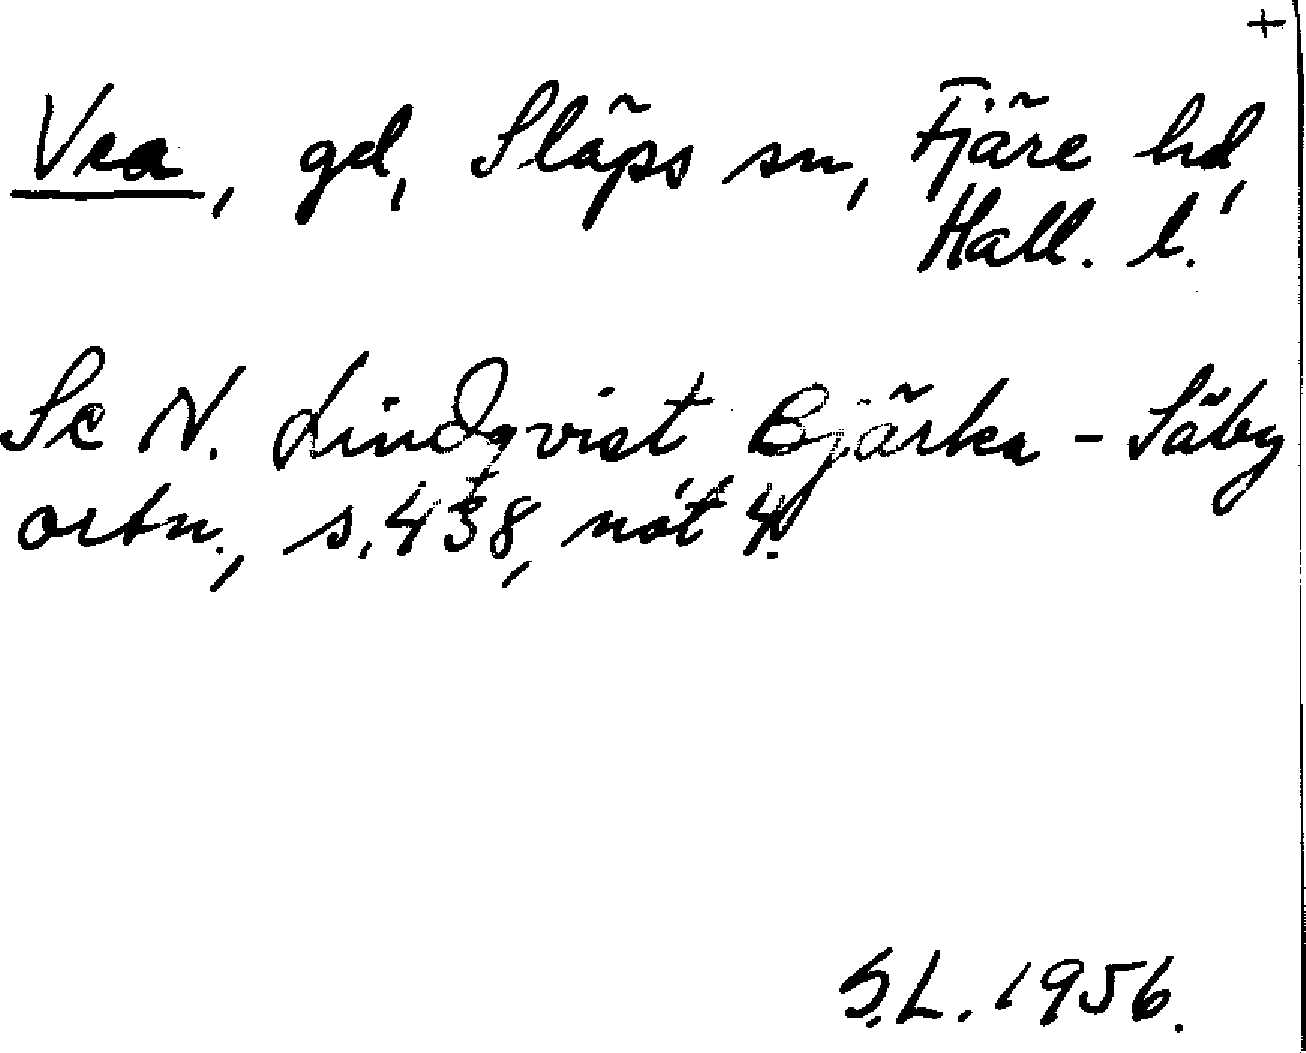 +
Vra, gd, Släps sn, Fjäre hd,
Hall. l.
Se N. Lindqvist Bjärka-Säby
ortn., s. 438, not 4.
S.L. 1956.